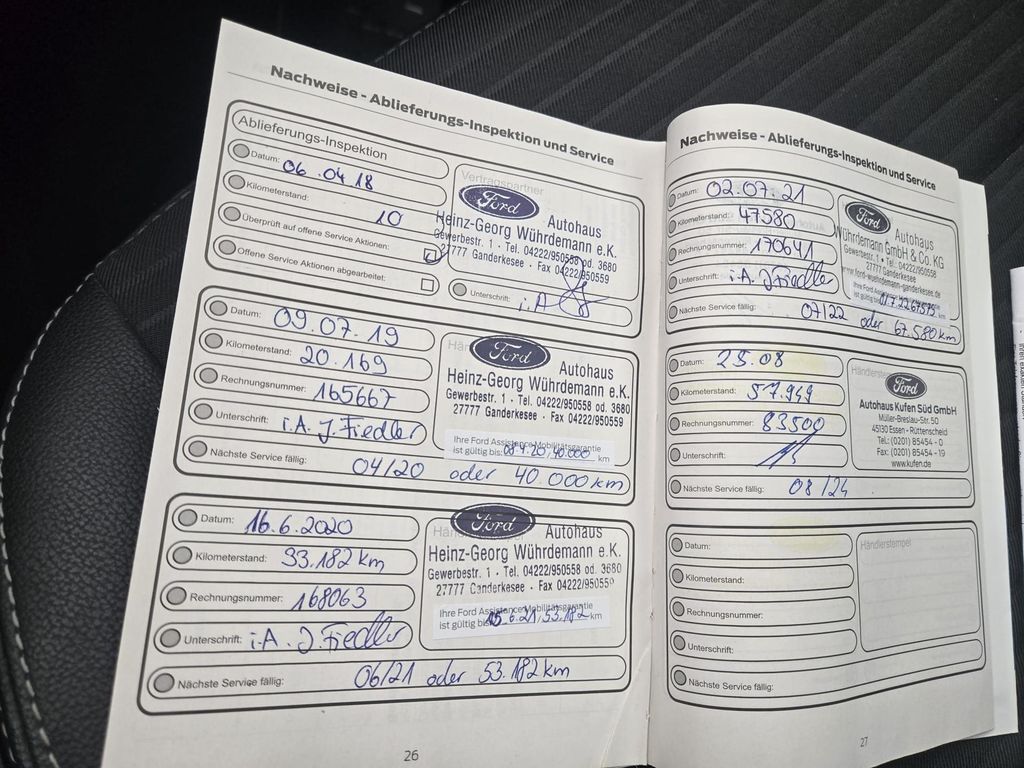 Nachweise - Ablieferungs-Inspektion und Service
Ablieferungs-Inspektion
Datum: 06.04.18
Kilometerstand: 10
Überprüft auf offene Service Aktionen:
Offene Service Aktionen abgearbeitet:
Vertragspartner
Ford
Autohaus
Heinz-Georg Wührdemann e.K.
Gewerbestr. 1 - Tel. 04222/950558 od. 3680
27777 Ganderkesee - Fax 04222/950559
Unterschrift: i.A
Datum: 09.07.19
Kilometerstand: 20.169
Rechnungsnummer: 165667
Unterschrift: i.A. J. Fiedler
Nächste Service fällig: 04/20 oder 40.000 km
Ford
Autohaus
Heinz-Georg Wührdemann e.K.
Gewerbestr. 1 - Tel. 04222/950558 od. 3680
27777 Ganderkesee - Fax 04222/950559
Ihre Ford Assistance Mobilitätsgarantie
ist gültig bis: 08.4.20, 40.000 km
Datum: 16.6.2020
Kilometerstand: 33.182 km
Rechnungsnummer: 168063
Unterschrift: i.A. J. Fiedler
Nächste Service fällig: 06/21 oder 53.182 km
Ford
Autohaus
Heinz-Georg Wührdemann e.K.
Gewerbestr. 1 - Tel. 04222/950558 od. 3680
27777 Ganderkesee - Fax 04222/950559
Ihre Ford Assistance Mobilitätsgarantie
ist gültig bis 15.6.21, 53.182 km
26
Nachweise - Ablieferungs-Inspektion und Service
Datum: 02.07.21
Kilometerstand: 47580
Rechnungsnummer: 170641
Unterschrift: i.A. J. Fiedler
Nächste Service fällig: 07/22 oder 67.580 km
Ford
Autohaus
Wührdemann GmbH & Co. KG
Gewerbestr. 1 • Tel. 04222/950558
27777 Ganderkesee
www.ford-wuehrdemann-ganderkesee.de
Ihre Ford Assistance
ist gültig bis: km
Datum: 25.08
Kilometerstand: 57.949
Rechnungsnummer: 83500
Unterschrift:
Nächste Service fällig: 08/24
Ford
Autohaus Kufen Süd GmbH
Müller-Breslau-Str. 50
45130 Essen - Rüttenscheid
Tel.: (0201) 85454 - 0
Fax: (0201) 85454 - 19
www.kufen.de
Datum:
Kilometerstand:
Rechnungsnummer:
Unterschrift:
Nächste Service fällig:
Händlerstempel
27